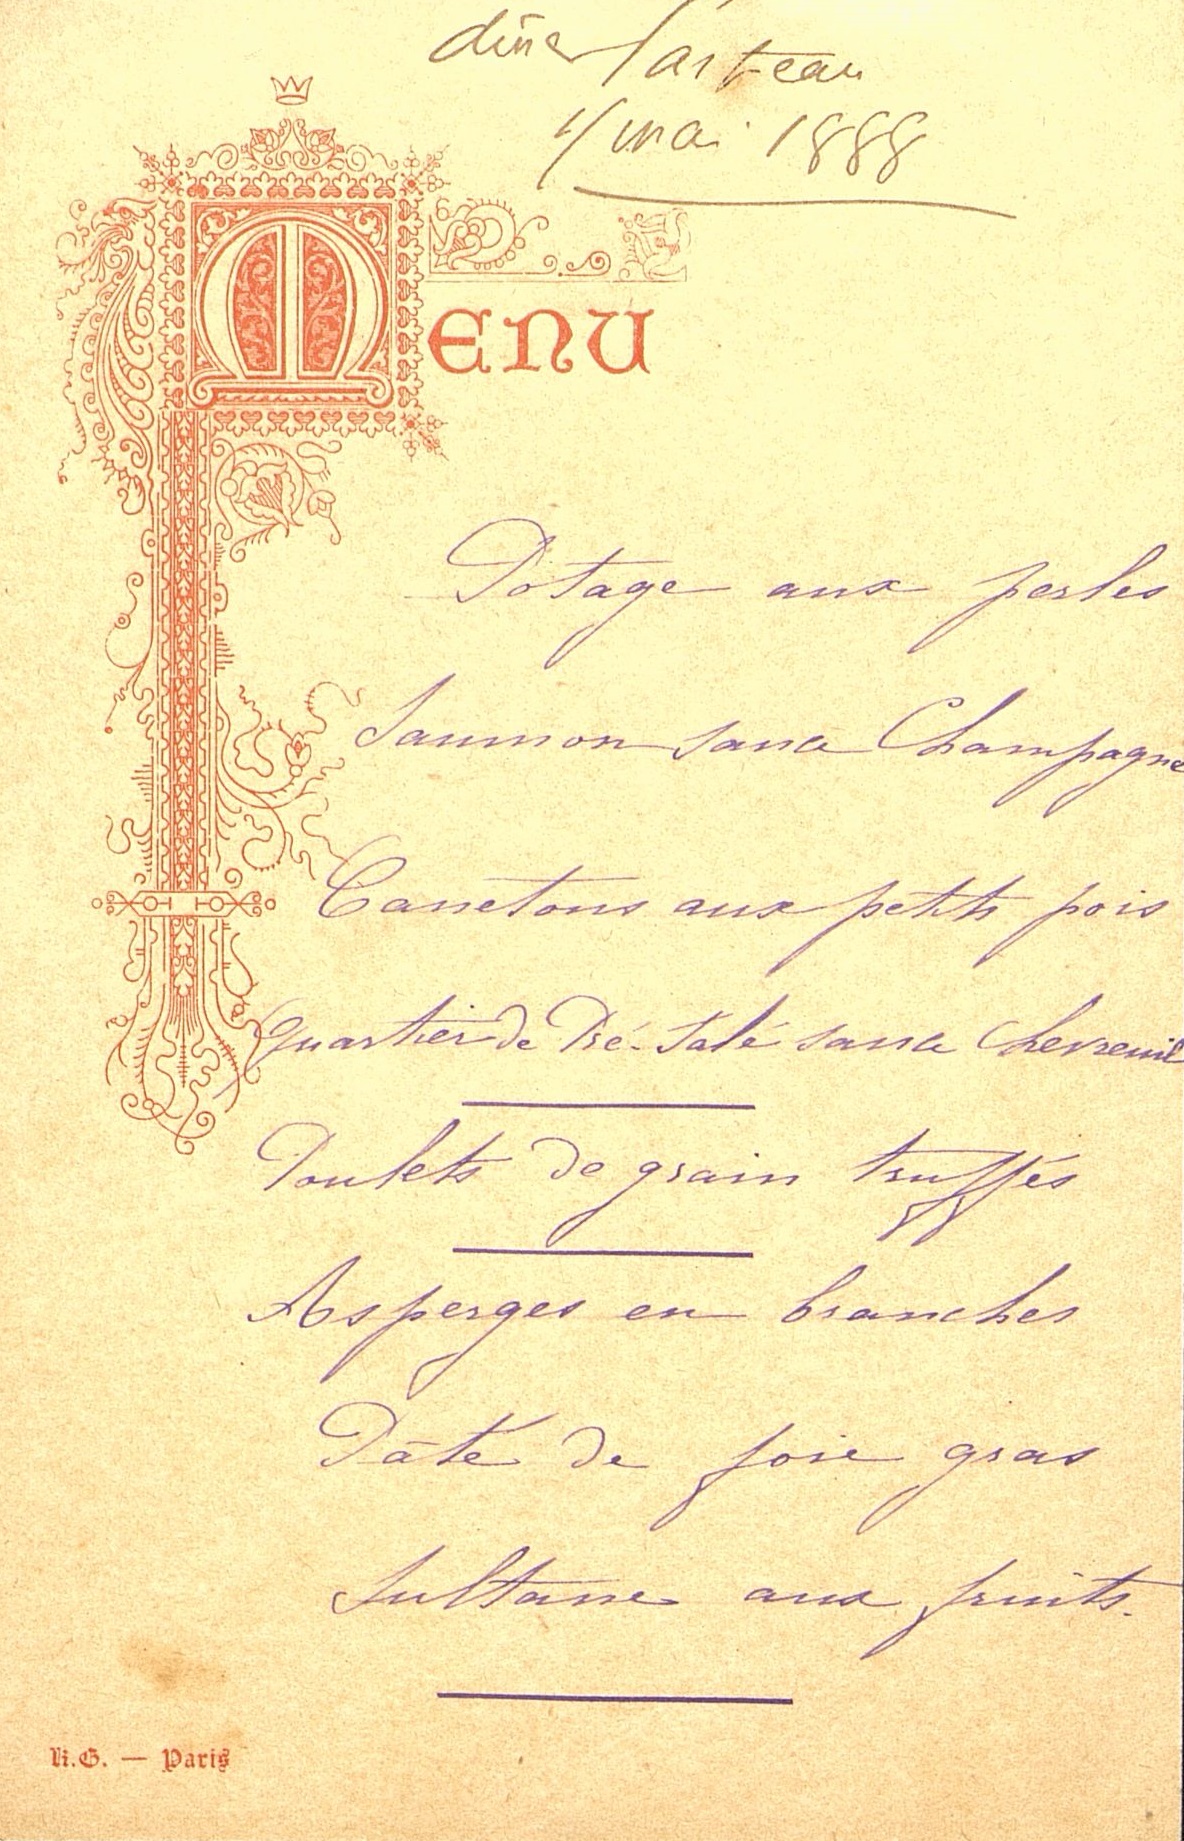 dîner
4 mai 1888
MENU
Potage aux perles
Saumon sauce Champagne
Canetons aux petits pois
Quartier de Pré-Salé sauce Chevreuil
Poulets de grain truffés
Asperges en branches
Pâté de foie gras
Sultane aux fruits.
N.G. — Paris